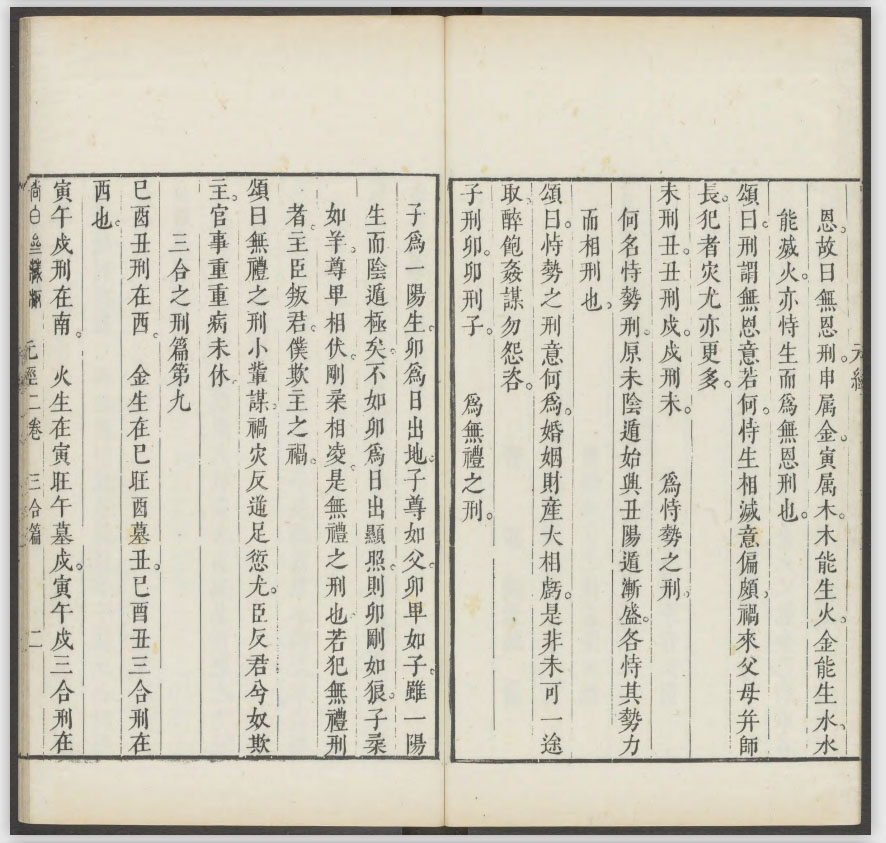 恩。故曰無恩刑。申属金。寅属木。木能生火。金能生水、水
能滅火。亦恃生而爲無恩刑也。
頌曰。刑謂無恩意若何。恃生相滅意偏頗、禍來父母并師
長。犯者灾尤亦更多。
未刑丑。丑刑戌。戌刑未。　爲恃勢之刑。
何名恃勢刑。原未陰遁始與丑陽遁漸盛。各恃其勢力
而相刑也。
頌曰。恃勢之刑意何爲。婚姻財産大相虧。是非未可一途
取。醉飽姦謀勿怨咨。
子刑卯。卯刑子。　爲無禮之刑。
子爲一陽生。卯爲日出地。子尊如父。卯卑如子。雖一陽
生而陰遁極矣。不如卯爲日出顯照。則卯剛如狼。子柔
如羊。尊卑相伏。剛柔相凌。是無禮之刑也。若犯無禮刑
者。主臣叛君。僕欺主之禍。
頌曰無禮之刑小輩謀。禍灾反逆足愆尤。臣反君兮奴欺
主。官事重重病未休。
三合之刑篇第九
巳酉丑刑在西。　金生在巳旺酉墓丑。巳酉丑三合刑在
西也。
寅午戌刑在南。　火生在寅旺午墓戌。寅午戌三合刑在
元經二卷　三合篇　二